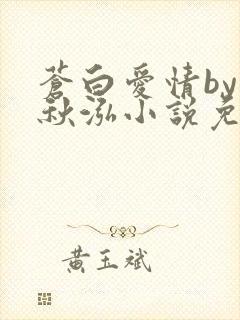 蒼白愛情by
秋泓小說免
黃玉斌